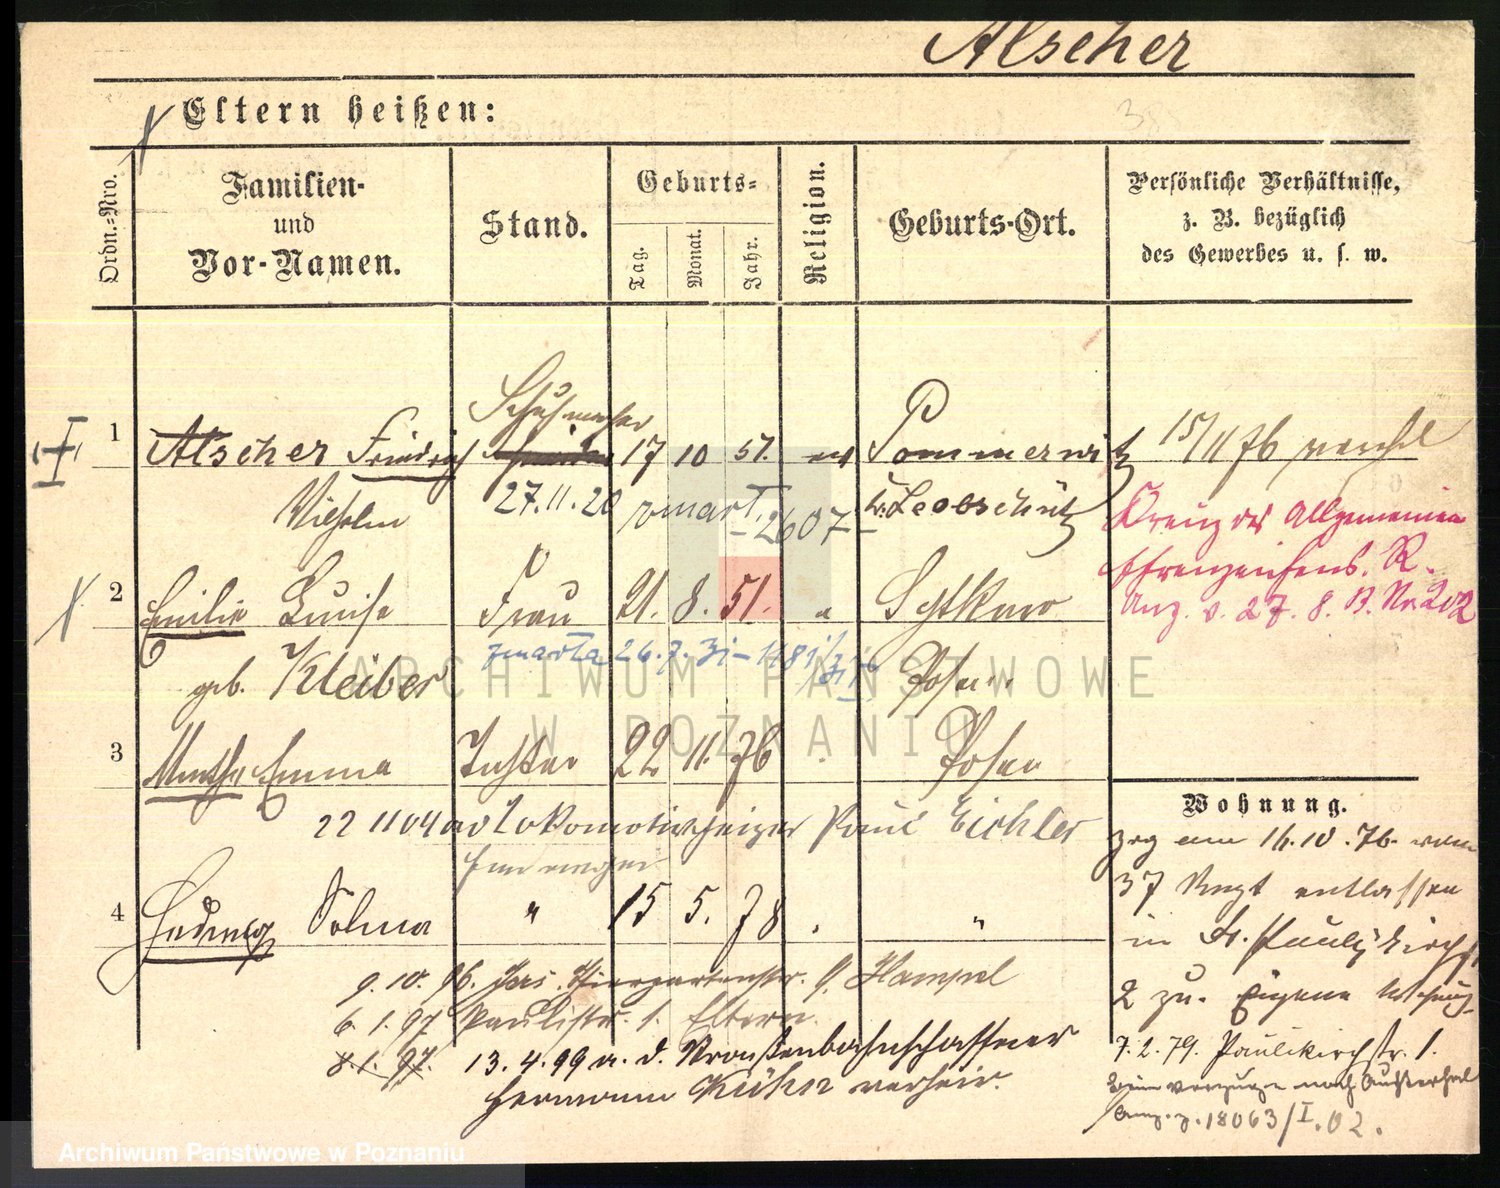 Alscher
Eltern heißen:
Ordn.-Nro.
Familien-
und
Vor-Namen.
Stand.
Geburts-
Tag.
Monat.
Jahr.
Religion.
Geburts-Ort.
Persönliche Verhältnisse,
z. B. bezüglich
des Gewerbes u. s. w.
Schuhmacher
1 Alscher Friedrich 17 10 51. ev Pommerwitz 15/11 76
Wilhelm 27.11.20 zmarł - 2607 - Kr. Leobschütz
Kreuz des Allgemeinen
2 Emilie Luise Frau 21. 8. 51. "
Anz. v. 27. 8. 13. No 202
zmarła 26.7.31 - 1481/31
geb. Kleiber Posen
3 Martha Emma Tochter 22 11. 76 Posen
22 11 04 an Lokomotivheizer Paul Eichler
4 Hedwig Selma " 15 5. 78 "
9. 10. 96. Thiergartenstr. 9. Hampel
6. 1. 97 Paulistr. 1. Eltern
8. 1. 97. 13. 4. 99 a. d. Straßenbahnschaffner
Hermann Kühn verheir.
Wohnung.
zog am 16.10.76. vom
37 Regt entlassen
in Paulikirchstr.
2 zu. Eigene Wohnung
7. 2. 79. Paulikirchstr. 1.
18063/I.02.
ARCHIWUM PAŃSTWOWE
W POZNANIU
Archiwum Państwowe w Poznaniu